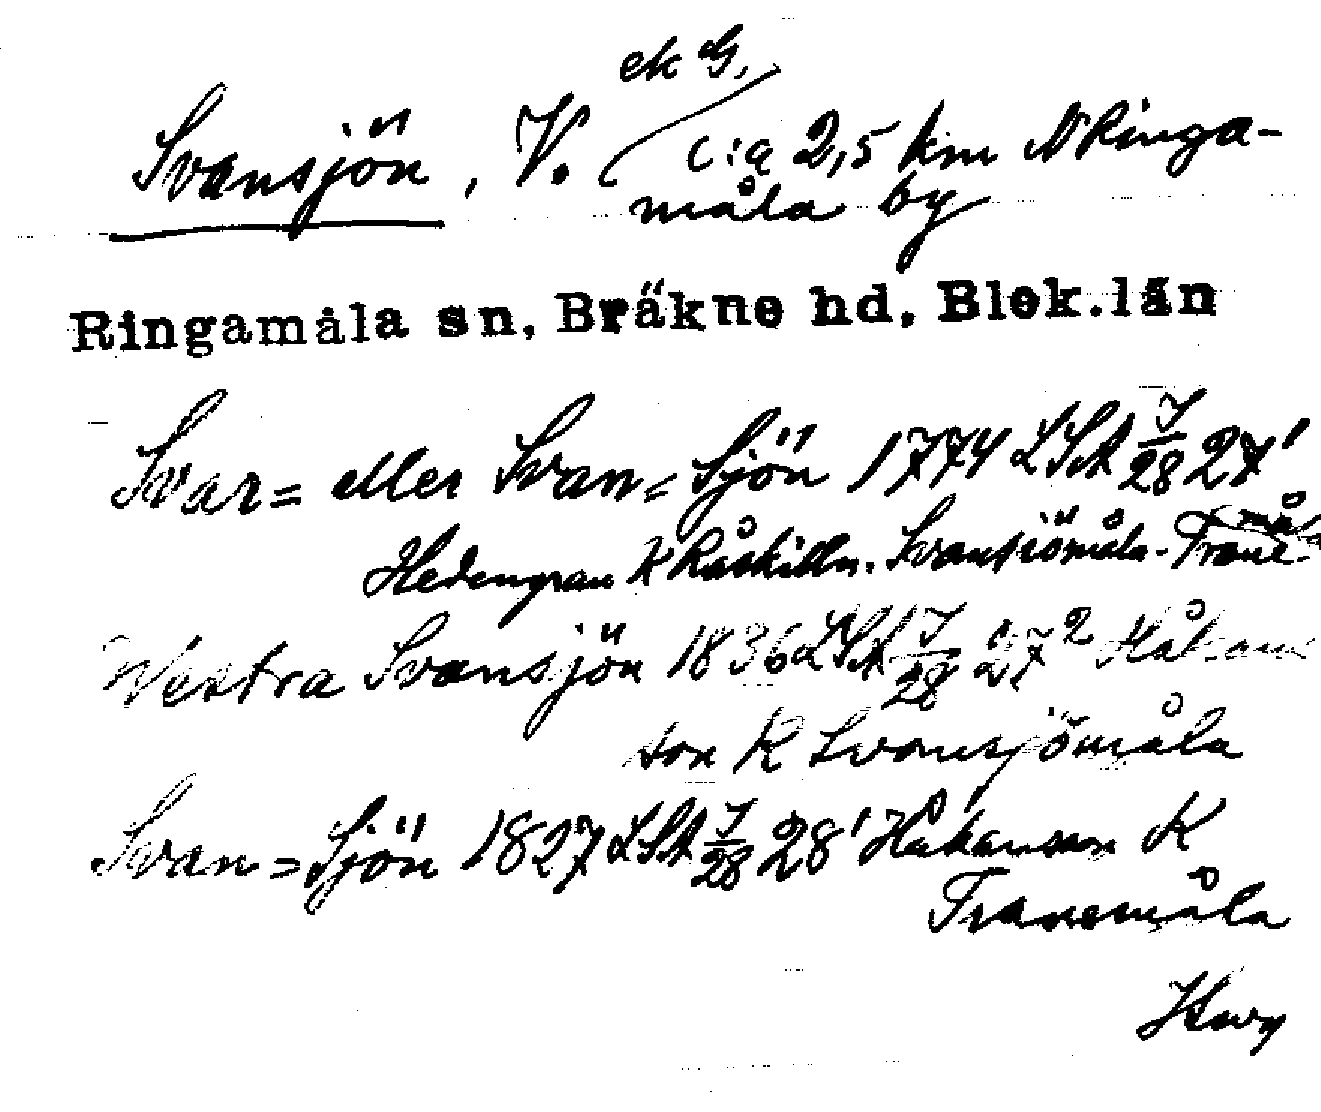 ek G.
Svansjön, V. c:a 2,5 km N Ringa-
måla by
Ringamåla sn, Bräkne hd. Blek.län
Svar= eller Svan= Sjön 1774 LSA J/28 27¹
Hedengran K Råskilln. Svansiömåla - Trane-
måla
Westra Svansjön 1836 LSA J/28 27² Håkans
son K Svansjömåla
Svan=Sjön 1827 LSA J/28 28¹ Håkansson K
Tranemåla